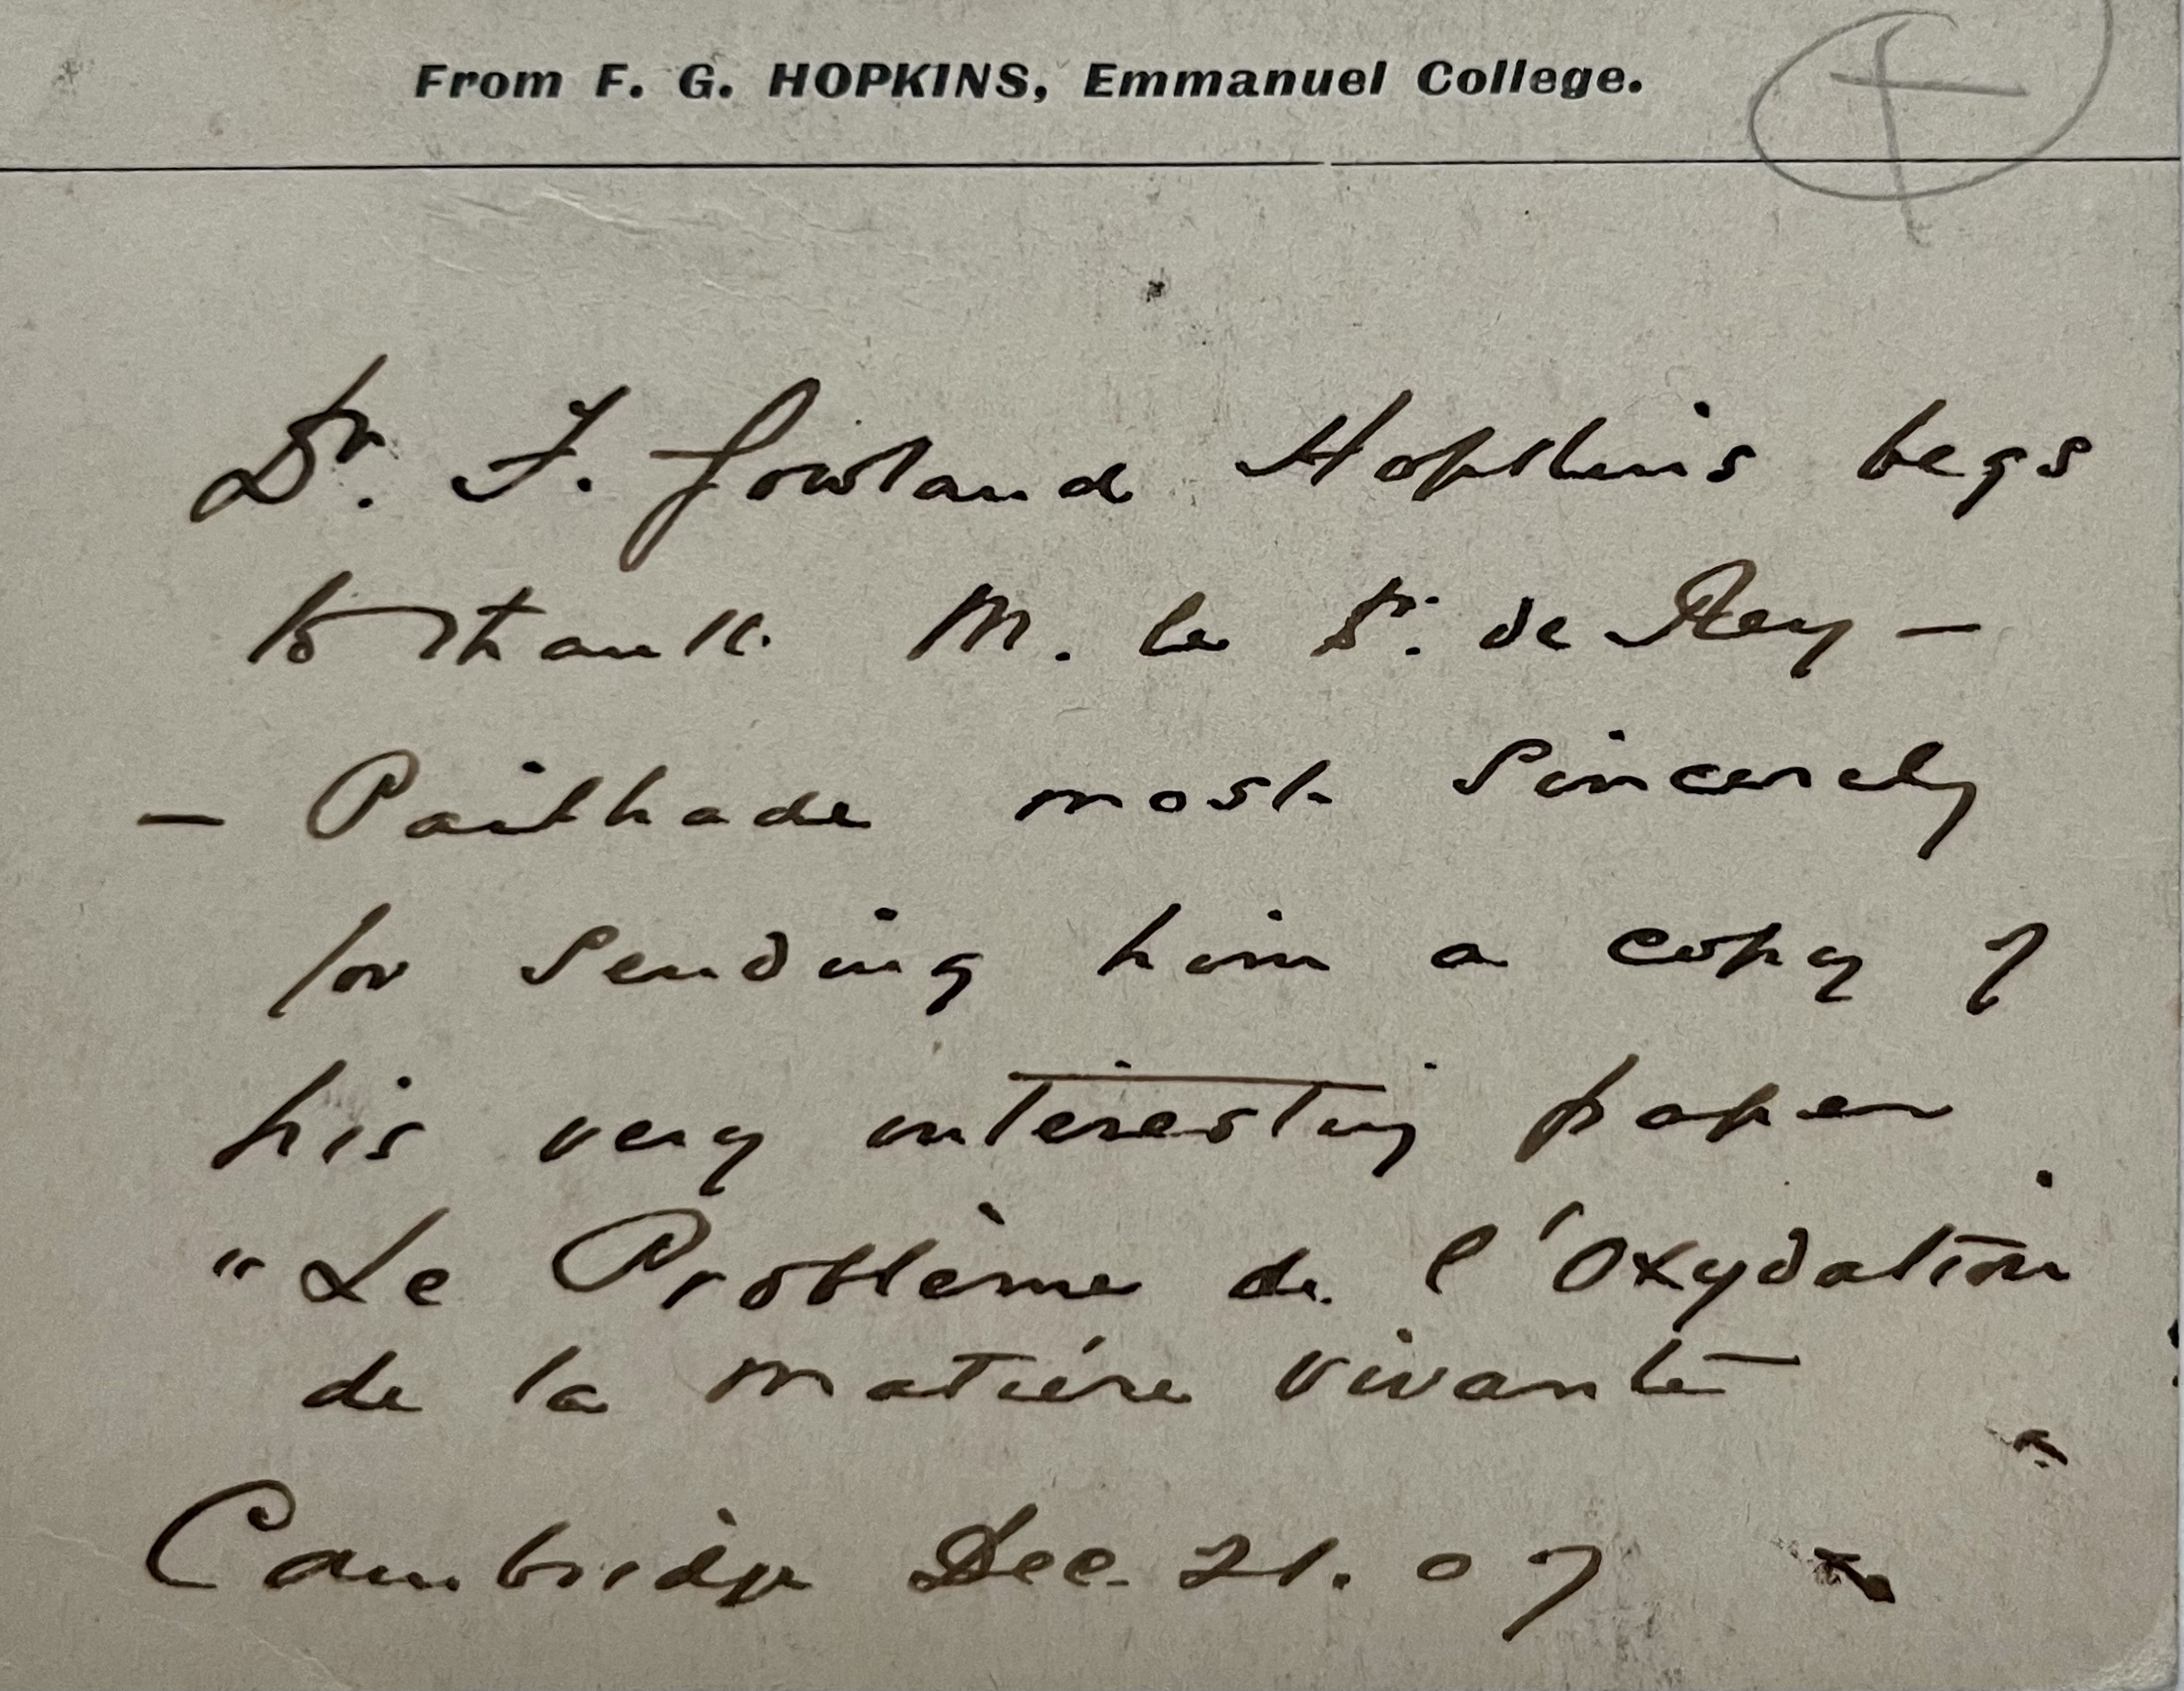 From F. G. HOPKINS, Emmanuel College.
Dr. F. Gowland Hopkins begs
to thank M. le Dr. de Rey —
— Pailhade most sincerely
for sending him a copy of
his very interesting paper
"Le Problème de l'Oxydation
de la matiére vivante
Cambridge Dec. 21. 07